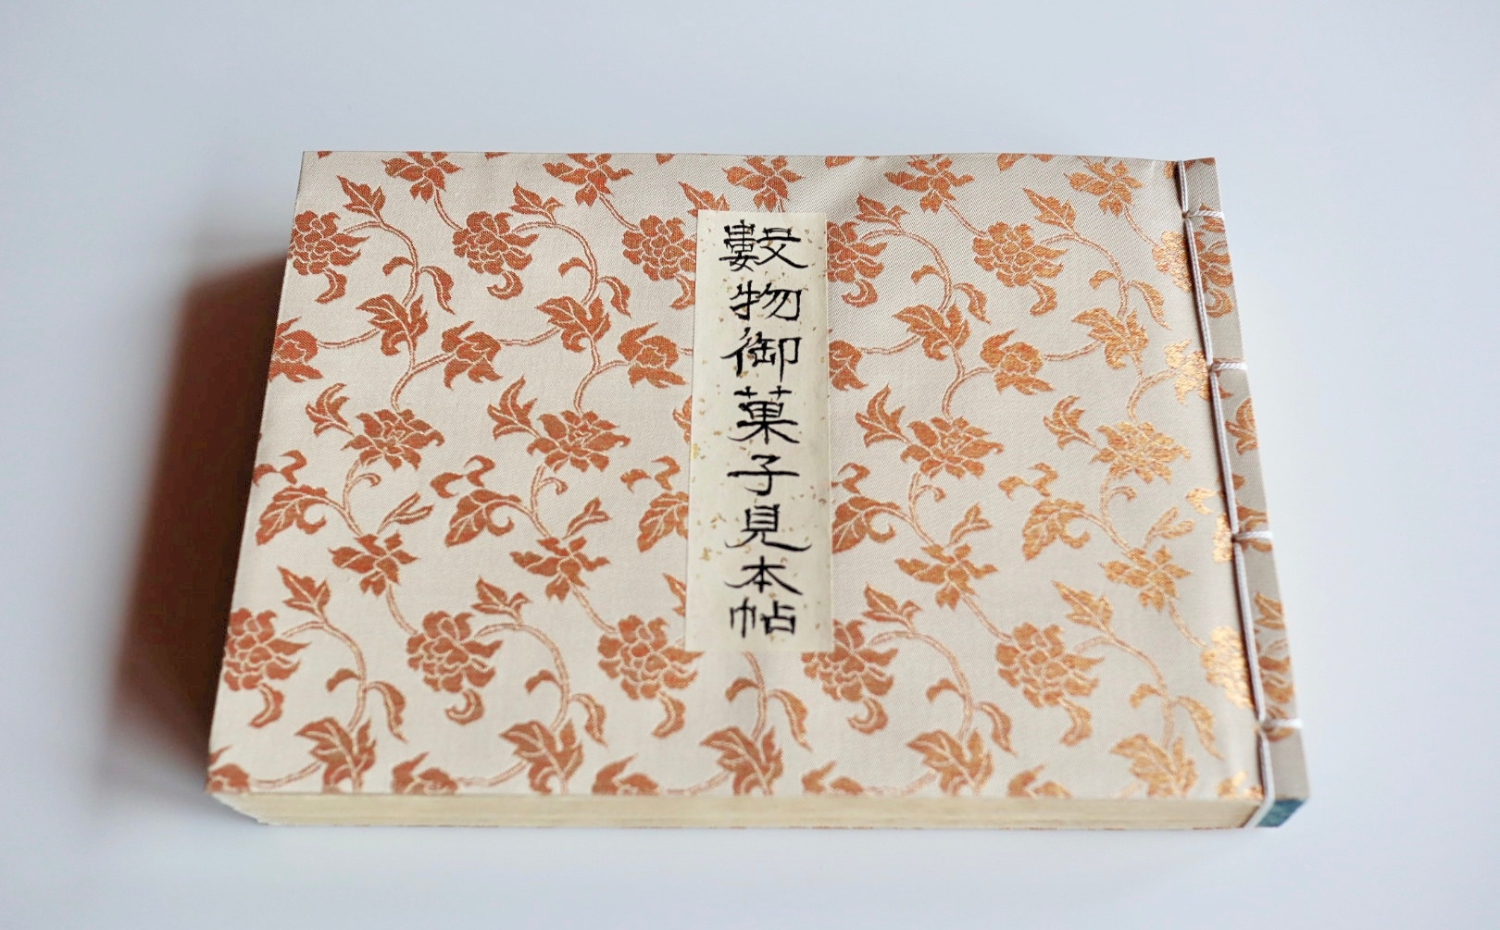 數物御菓子見本帖